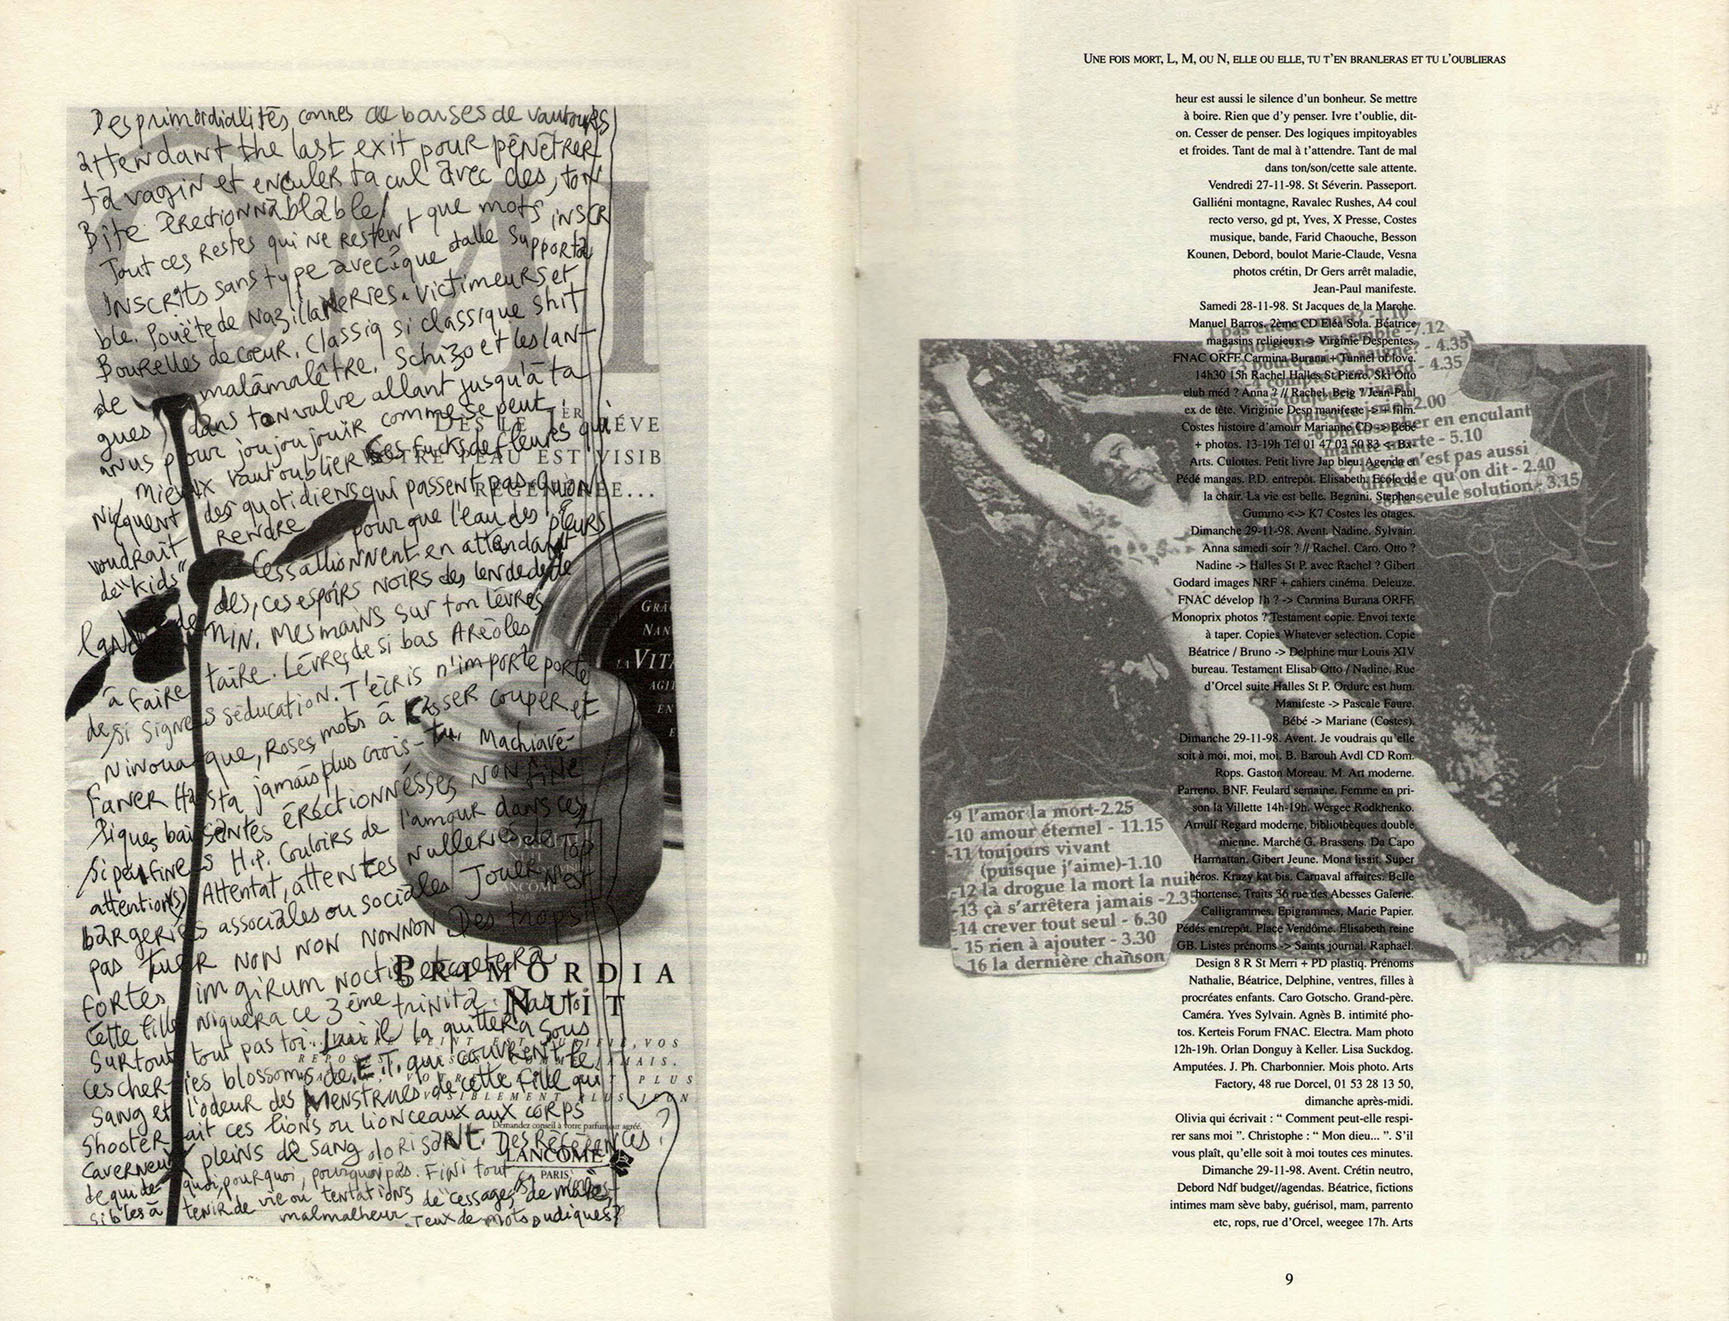 Des primordialités connes de bourses de vautours
attendant the last exit pour pénétrer
ta vagin et enculer ta cul avec des, ton
Bite érectionnablable!
Tout ces restes qui ne restent que mots inscr
inscrits sans type avec que dalle supporta
ble. Pouëte de nazillarderies. Victimeurs et
Bourelles de cœur. Classiq si classique shit
de malamalêtre. Schizo et les lant
gues, dans ton vulve allant jusqu'à ta
anus pour joujoujouir comme se peut
mieux vaut oublier ces fucks de fleurs qui
niequent des quotidiens qui passent pas. Qu'on
voudrait rendre pour que l'eau des pleurs
de "kids" cessallionnent en attendant
des, ces espoirs noirs des lendedede
main. Mes mains sur ton lèvres
à faire taire. Lèvres de si bas Aréoles
de si signes séduction. T'écris n'importe porte
Ninoua que, Roses, mots à casser couper et
faner Hasta jamais plus crois-tu. Machiavé-
liques baisantes érectionnésses non fine
si peu fines H.P. Couloirs de l'amour dans ces
attention(s) Attentat, attentes nulleries de Top
bargeries associales ou sociales Jouer n'est
pas tuer non non nonnon. Des trops
fortes in girum noctis et caetera
Cette fille niquera ce 3ème trinita. Pas toi
surtout tout pas toi. Lui il la quittera sous
ces cherries blossoms de E.T. qui couvrent le
sang et l'odeur des Menstrues de cette fille qui
shooterait ces lions ou lionceaux aux corps
caverneux pleins de sang dorisant. Des Récurrences?
de qui de quoi, pourquoi, pourquoi pas. Fini tout
sibles à tenir de vie ou tentations de "cessages" de mal
malmalheur. Jeux de mots pudiques?
DÈS LE 1ER
VOTRE PEAU EST VISIB
RÉGÉNÉRÉE...
PRIMORDIA
NUIT
Demandez conseil à votre parfumeur agréé.
LANCÔME
PARIS
UNE FOIS MORT, L, M, OU N, ELLE OU ELLE, TU T'EN BRANLERAS ET TU L'OUBLIERAS
heur est aussi le silence d'un bonheur. Se mettre
à boire. Rien que d'y penser. Ivre t'oublie, dit-
on. Cesser de penser. Des logiques impitoyables
et froides. Tant de mal à t'attendre. Tant de mal
dans ton/son/cette sale attente.
Vendredi 27-11-98. St Séverin. Passeport.
Galliéni montagne, Ravalec Rushes, A4 coul
recto verso, gd pt, Yves, X Presse, Costes
musique, bande, Farid Chaouche, Besson
Kounen, Debord, boulot Marie-Claude, Vesna
photos crétin, Dr Gers arrêt maladie,
Jean-Paul manifeste.
Samedi 28-11-98. St Jacques de la Marche.
Manuel Barros. 2ème CD Eléa Sola. Béatrice
magasins religieux -> Virginie Despentes.
FNAC ORFF Carmina Burana + Tunnel oblove.
14h30 15h Rachel Halles St Pierre. Ski Otto
club méd ? Anna ? // Rachel. Beig ? Jean-Paul
ex de tête. Viriginie Desp manifeste -> + film.
Costes histoire d'amour Marianne CD -> Bébé
+ photos. 13-19h Tél 01 47 03 50 83 <- Bx-
Arts. Culottes. Petit livre Jap bleu. Agenda et
Pédé mangas. P.D. entrepôt. Elisabeth. Ecole de
la chair. La vie est belle. Begnini. Stephen
Gummo <-> K7 Costes les otages.
Dimanche 29-11-98. Avent. Nadine. Sylvain.
Anna samedi soir ? // Rachel. Caro. Otto ?
Nadine -> Halles St P. avec Rachel ? Gibert
Godard images NRF + cahiers cinéma. Deleuze.
FNAC dévelop 1h ? -> Carmina Burana ORFF.
Monoprix photos ? Testament copie. Envoi texte
à taper. Copies Whatever selection. Copie
Béatrice / Bruno -> Delphine mur Louis XIV
bureau. Testament Elisab Otto / Nadine. Rue
d'Orcel suite Halles St P. Ordure est hum.
Manifeste -> Pascale Faure.
Bébé -> Mariane (Costes).
Dimanche 29-11-98. Avent. Je voudrais qu'elle
soit à moi, moi, moi. B. Barouh Avdl CD Rom.
Rops. Gaston Moreau. M. Art moderne.
Parreno. BNF. Feulard semaine. Femme en pri-
son la Villette 14h-19h. Wergee Rodkhenko.
Arnulf Regard moderne, bibliothèques double
mienne. Marché G. Brassens. Da Capo
Harmattan. Gibert Jeune. Mona lisait. Super
héros. Krazy kat bis. Carnaval affaires. Belle
hortense. Traits 36 rue des Abesses Galerie.
Calligrammes. Epigrammes, Marie Papier.
Pédés entrepôt. Place Vendôme. Elisabeth reine
GB. Listes prénoms -> Saints journal. Raphaël.
Design 8 R St Merri + PD plastiq. Prénoms
Nathalie, Béatrice, Delphine, ventres, filles à
procréates enfants. Caro Gotscho. Grand-père.
Caméra. Yves Sylvain. Agnès B. intimité pho-
tos. Kerteis Forum FNAC. Electra. Mam photo
12h-19h. Orlan Donguy à Keller. Lisa Suckdog.
Amputées. J. Ph. Charbonnier. Mois photo. Arts
Factory, 48 rue Dorcel, 01 53 28 13 50,
dimanche après-midi.
Olivia qui écrivait : “ Comment peut-elle respi-
rer sans moi ”. Christophe : “ Mon dieu... ”. S'il
vous plaît, qu'elle soit à moi toutes ces minutes.
Dimanche 29-11-98. Avent. Crétin neutro,
Debord Ndf budget//agendas. Béatrice, fictions
intimes mam sève baby, guérisol, mam, parrento
etc, rops, rue d'Orcel, weegee 17h. Arts
pas encore mort? -1.10
ensemble -7.12
saigne? - 4.35
rebours - 4.35
-5 toujours vivant
(puisque j'aie)-2.00
-6 philosopher en enculant
morte - 5.10
n'est pas aussi
qu'on dit - 2.40
seule solution - 3.15
-9 l'amor la mort-2.25
-10 amour éternel - 11.15
-11 toujours vivant
(puisque j'aime)-1.10
-12 la drogue la mort la nuit
-13 çà s'arrêtera jamais -2.35
-14 crever tout seul - 6.30
- 15 rien à ajouter - 3.30
16 la dernière chanson
9